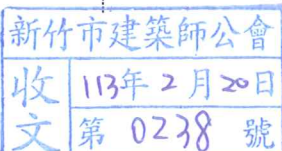 新竹市建築師公會
收文
113年2月20日
第0238號